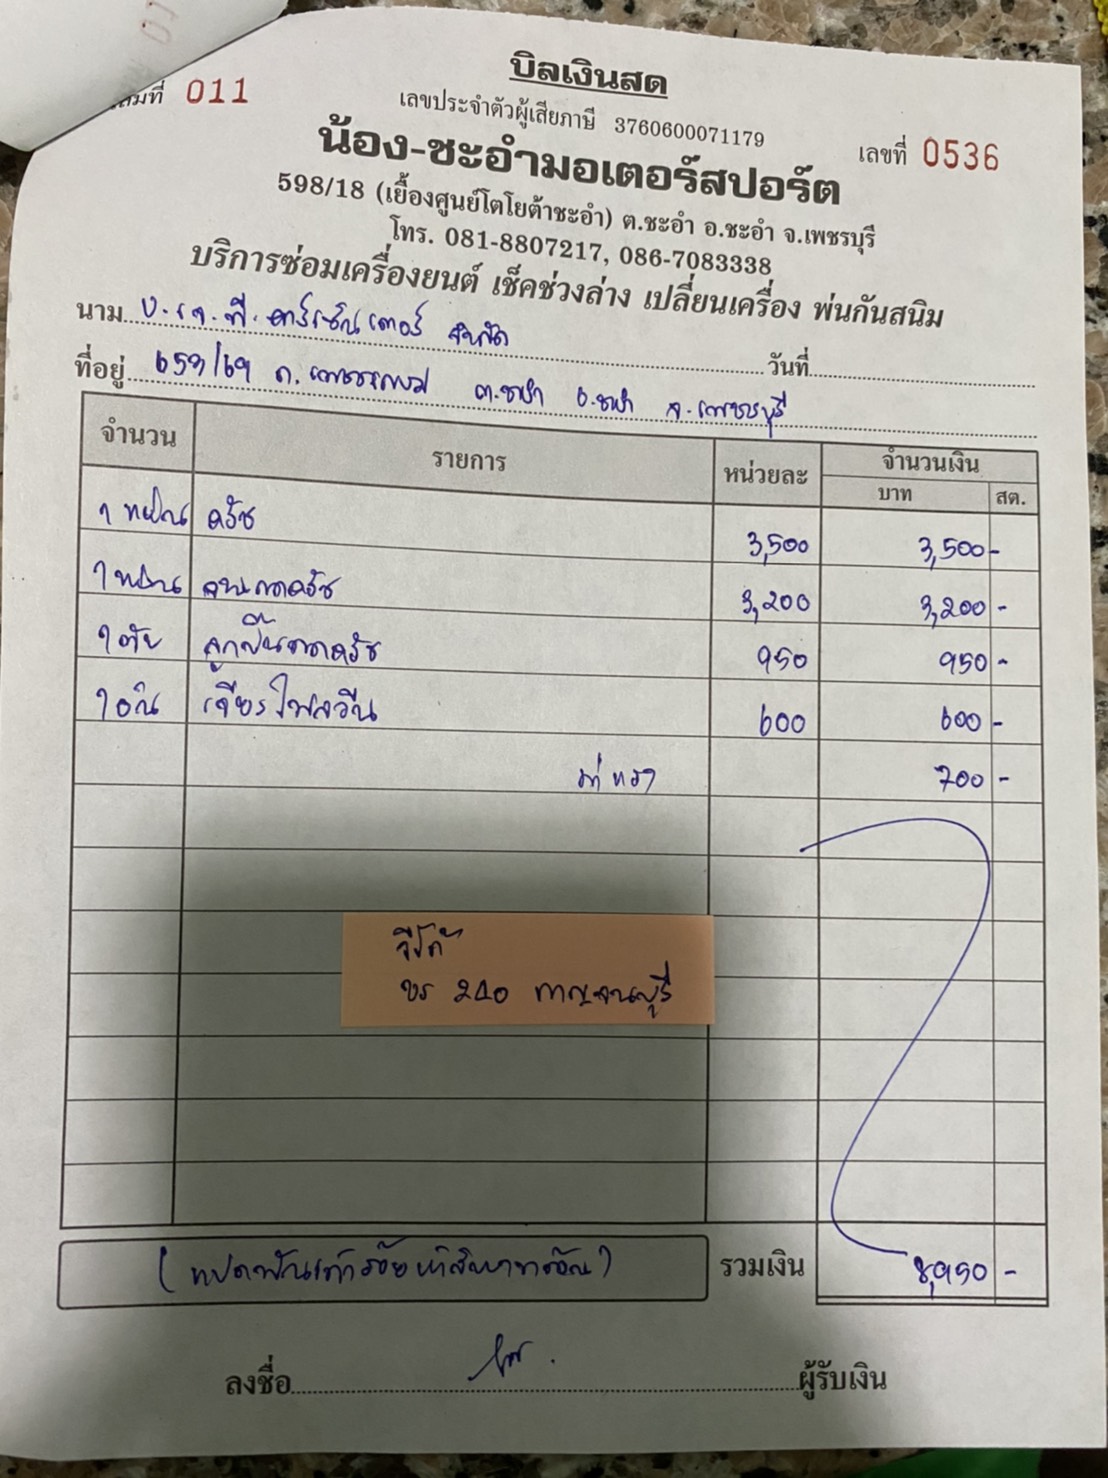 บิลเงินสด
เล่มที่ 011
เลขประจำตัวผู้เสียภาษี 3760600071179
เลขที่ 0536
น้อง-ชะอำมอเตอร์สปอร์ต
598/18 (เยื้องศูนย์โตโยต้าชะอำ) ต.ชะอำ อ.ชะอำ จ.เพชรบุรี
โทร. 081-8807217, 086-7083338
บริการซ่อมเครื่องยนต์ เช็คช่วงล่าง เปลี่ยนเครื่อง พ่นกันสนิม
นาม บ.เจ.ที.คาร์เซ็นเตอร์ จำกัด วันที่
ที่อยู่ 659/69 ถ.เพชรเกษม ต.ชะอำ อ.ชะอำ จ.เพชรบุรี
จำนวน รายการ หน่วยละ จำนวนเงิน
บาท สต.
1 แผ่น ครัช 3,500 3,500 -
1 แผ่น จานกดครัช 3,200 3,200 -
1 ตัว ลูกปืนกดครัช 950 950 -
1 อัน เจียรไฟลวีน 600 600 -
ค่าแรง 700 -
วีโก้
บร 240 กาญจนบุรี
(แปดพันเก้าร้อยห้าสิบบาทถ้วน) รวมเงิน 8,950 -
ลงชื่อ ผู้รับเงิน